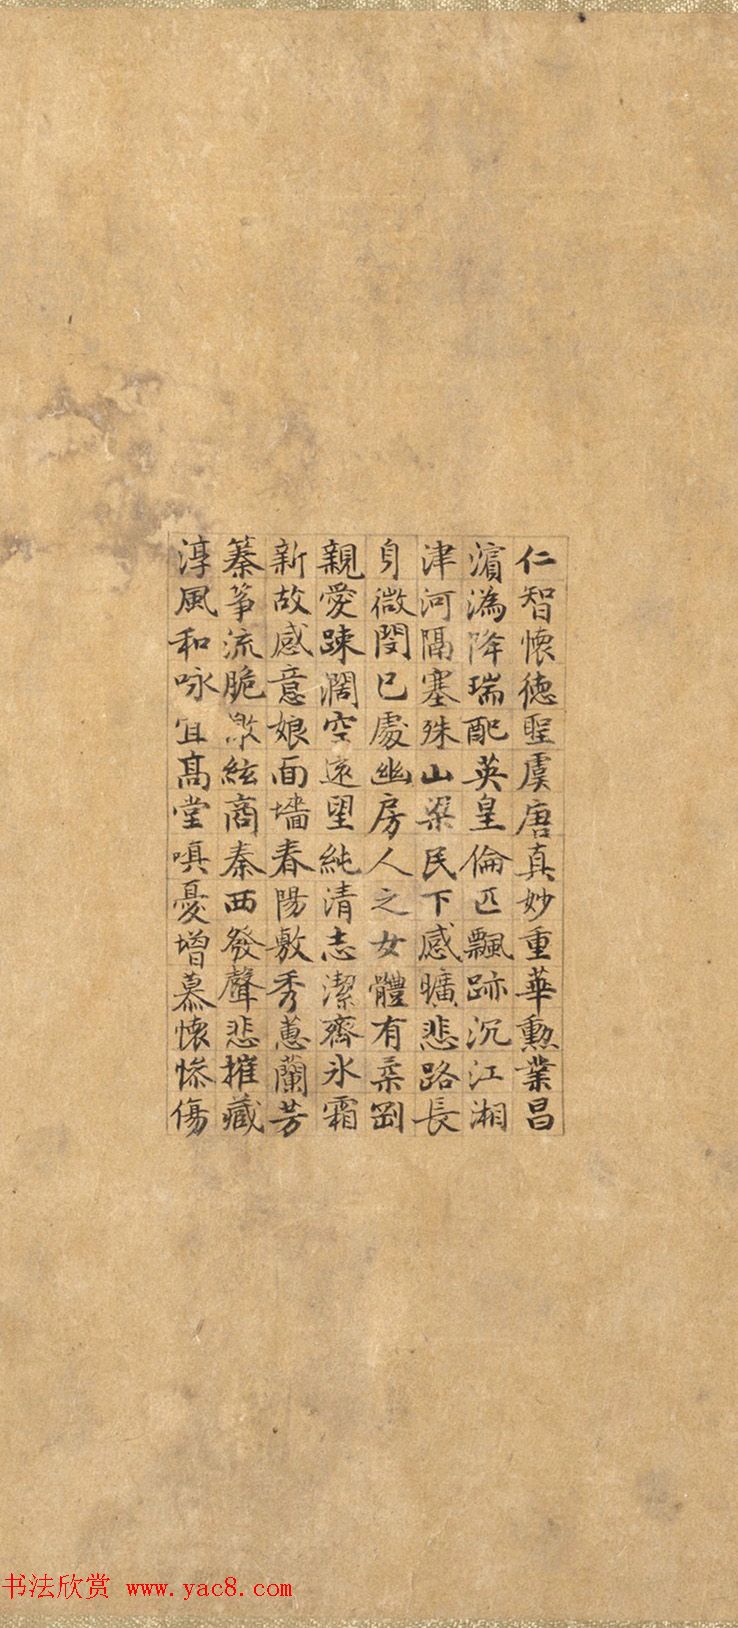 仁智懷德聖虞唐真妙重華勲業昌
濵溈降瑞配英皇倫匹飄跡沉江湘
津河隔塞殊山梁民下感曠悲路長
身微閔已處幽房人之女體有柔剛
親愛踈濶空遠望純清志潔齊氷霜
新故感意娘面墻春陽敷秀蕙蘭芳
蓁箏流脆激絃商秦西發聲悲摧藏
淳風和咏宜高堂嗔憂增慕懷慘傷
书法欣赏 www.yac8.com